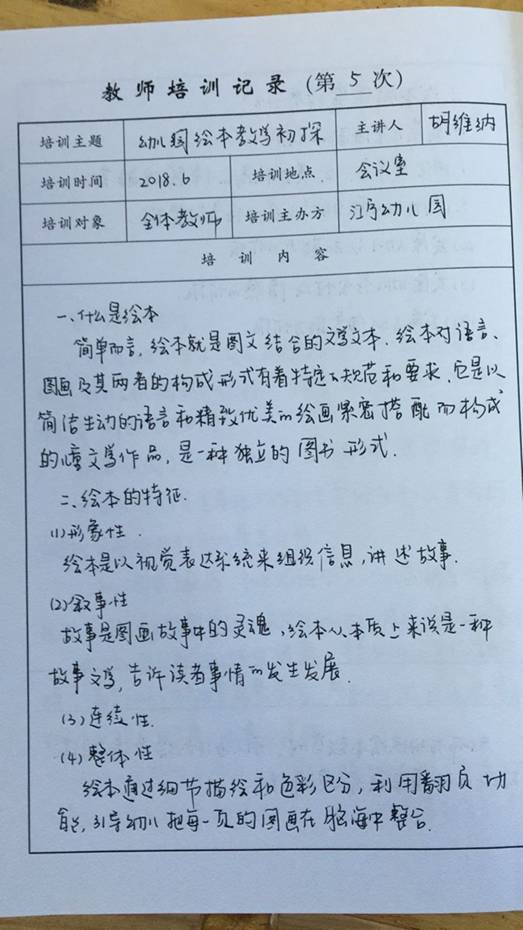 教师培训记录（第 5 次）
培训主题 幼儿园绘本教学初探 主讲人 胡维纳
培训时间 2018.6 培训地点 会议室
培训对象 全体教师 培训主办方 幼儿园
培训内容
一、什么是绘本
简单而言，绘本就是图文结合的文学文本．绘本对语言、
图画及其两者的构成形式有着特定的规范和要求．它是以
简洁生动的语言和精致优美的绘画紧密搭配而构成
的儿童文学作品，是一种独立的图书形式．
二、绘本的特征．
(1)形象性．
绘本是以视觉表达系统来组织信息，讲述故事．
(2)叙事性
故事是图画故事中的灵魂，绘本从本质上来说是一种
故事文学，告诉读者事情的发生发展．
(3)连续性．
(4)整体性
绘本通过细节描绘和色彩区分，利用翻页功
能，引导幼儿把每一页的图画在脑海中整合．